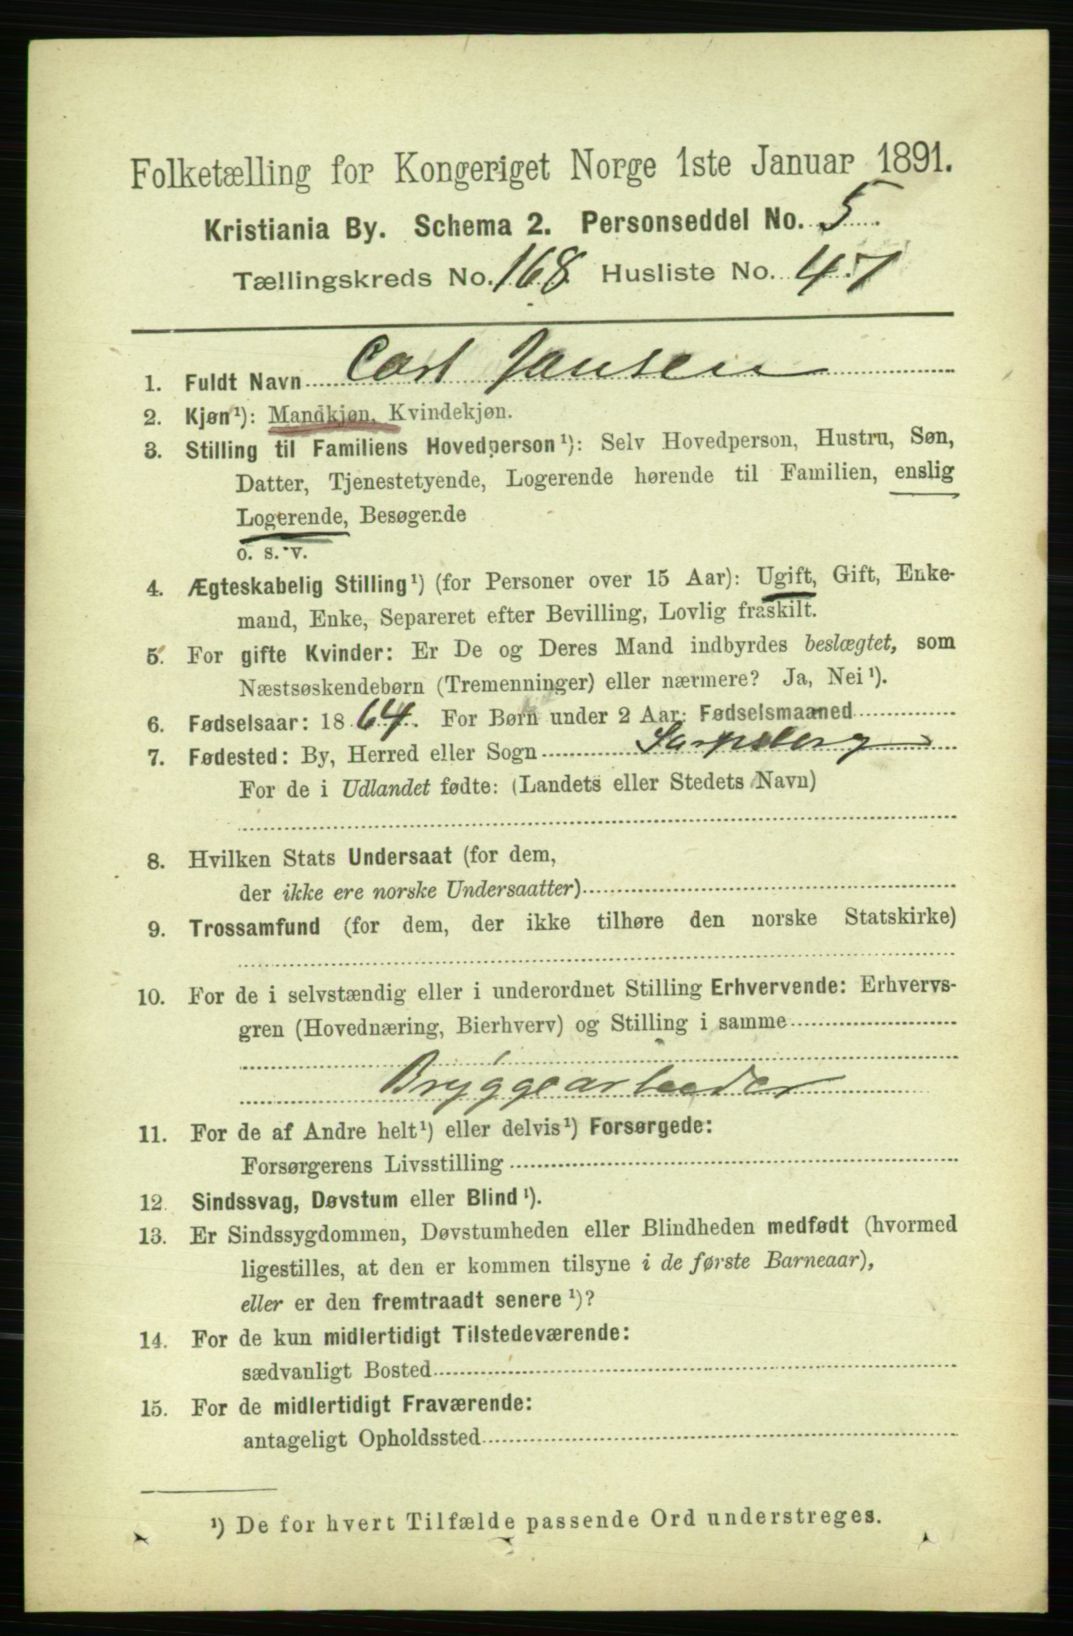 Folketælling for Kongeriget Norge 1ste Januar 1891.
Kristiania By. Schema 2. Personseddel No. 5.
Tællingskreds No. 168 Husliste No. 47
1. Fuldt Navn Carl Jansen
2. Kjøn¹): Mandkjøn, Kvindekjøn.
3. Stilling til Familiens Hovedperson¹): Selv Hovedperson, Hustru, Søn,
Datter, Tjenestetyende, Logerende hørende til Familien, enslig
Logerende, Besøgende
o. s. v.
4. Ægteskabelig Stilling¹) (for Personer over 15 Aar): Ugift, Gift, Enke-
mand, Enke, Separeret efter Bevilling, Lovlig fraskilt.
5. For gifte Kvinder: Er De og Deres Mand indbyrdes beslægtet, som
Næstsøskendebørn (Tremenninger) eller nærmere? Ja, Nei¹).
6. Fødselsaar: 1864. For Børn under 2 Aar: Fødselsmaaned
7. Fødested: By, Herred eller Sogn Sarpsborg
For de i Udlandet fødte: (Landets eller Stedets Navn)
8. Hvilken Stats Undersaat (for dem,
der ikke ere norske Undersaatter)
9. Trossamfund (for dem, der ikke tilhøre den norske Statskirke)
10. For de i selvstændig eller i underordnet Stilling Erhvervende: Erhvervs-
gren (Hovednæring, Bierhverv) og Stilling i samme
Bryggearbeider
11. For de af Andre helt¹) eller delvis¹) Forsørgede:
Forsørgerens Livsstilling
12. Sindssvag, Døvstum eller Blind¹).
13. Er Sindssygdommen, Døvstumheden eller Blindheden medfødt (hvormed
ligestilles, at den er kommen tilsyne i de første Barneaar),
eller er den fremtraadt senere¹)?
14. For de kun midlertidigt Tilstedeværende:
sædvanligt Bosted
15. For de midlertidigt Fraværende:
antageligt Opholdssted
¹) De for hvert Tilfælde passende Ord understreges.